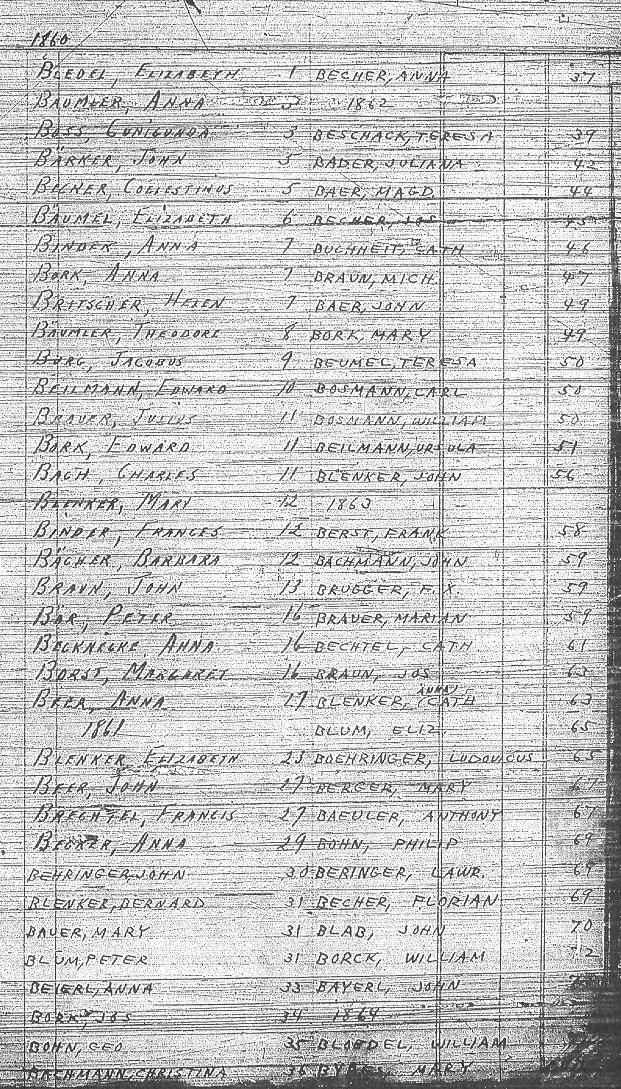 1860
BLEDEL, ELIZABETH 1
BAUMLER, ANNA
BOSS, CUNIGUNDA 3
BÄRKER, JOHN 5
BECHER, COELESTINUS 5
BÄUMEL, ELIZABETH 6
BINDER, ANNA 7
BORK, ANNA 7
BRITSCHER, HELEN 7
BÄUMLER, THEODORE 8
BORG, JACOBUS 9
BEILMANN, EDWARD 10
BRAUER, JULIUS 11
BORK, EDWARD 11
BACH, CHARLES 11
BLENKER, MARY 12
BINDER, FRANCES 12
BÄCHER, BARBARA 12
BRAUN, JOHN 13
BÖR, PETER 16
BECKNECKE, ANNA 16
BORST, MARGARET 16
BEER, ANNA 17
1861
BLENKER, ELIZABETH 23
BEER, JOHN 27
BRECHTEL, FRANCIS 27
BECKER, ANNA 29
BEHRINGER, JOHN 30
BLENKER, BERNARD 31
BAUER, MARY 31
BLUM, PETER 31
BEIERL, ANNA 33
BORK, JOS 34
BOHN, GEO 35
BACHMANN, CHRISTINA 36
BECHER, ANNA 37
1862
BESCHACK, TERESA 39
BADER, JULIANA 42
BAER, MAGD. 44
BECHER, JOS 45
BUCHHEIT, CATH 46
BRAUN, MICH. 47
BAER, JOHN 49
BORK, MARY 49
BEUMEL, TERESA 50
BOSMANN, CARL 50
BOSMANN, WILLIAM 50
BEILMANN, URSULA 51
BLENKER, JOHN 56
1863
BERST, FRANK 58
BACHMANN, JOHN 59
BRUGGER, F. X. 59
BRAUER, MARIAN 59
BECHTEL, CATH 61
BRAUN, JOS 63
BLENKER, (ANNA) CATH 63
BLUM, ELIZ. 65
BOEHRINGER, LUDOVICUS 65
BERGER, MARY 67
BAEULER, ANTHONY 67
BOHN, PHILIP 69
BERINGER, LAWR. 69
BECHER, FLORIAN 69
BLAB, JOHN 70
BORCK, WILLIAM 72
BAYERL, JOHN
1864
BLONDEL, WILLIAM
MARY